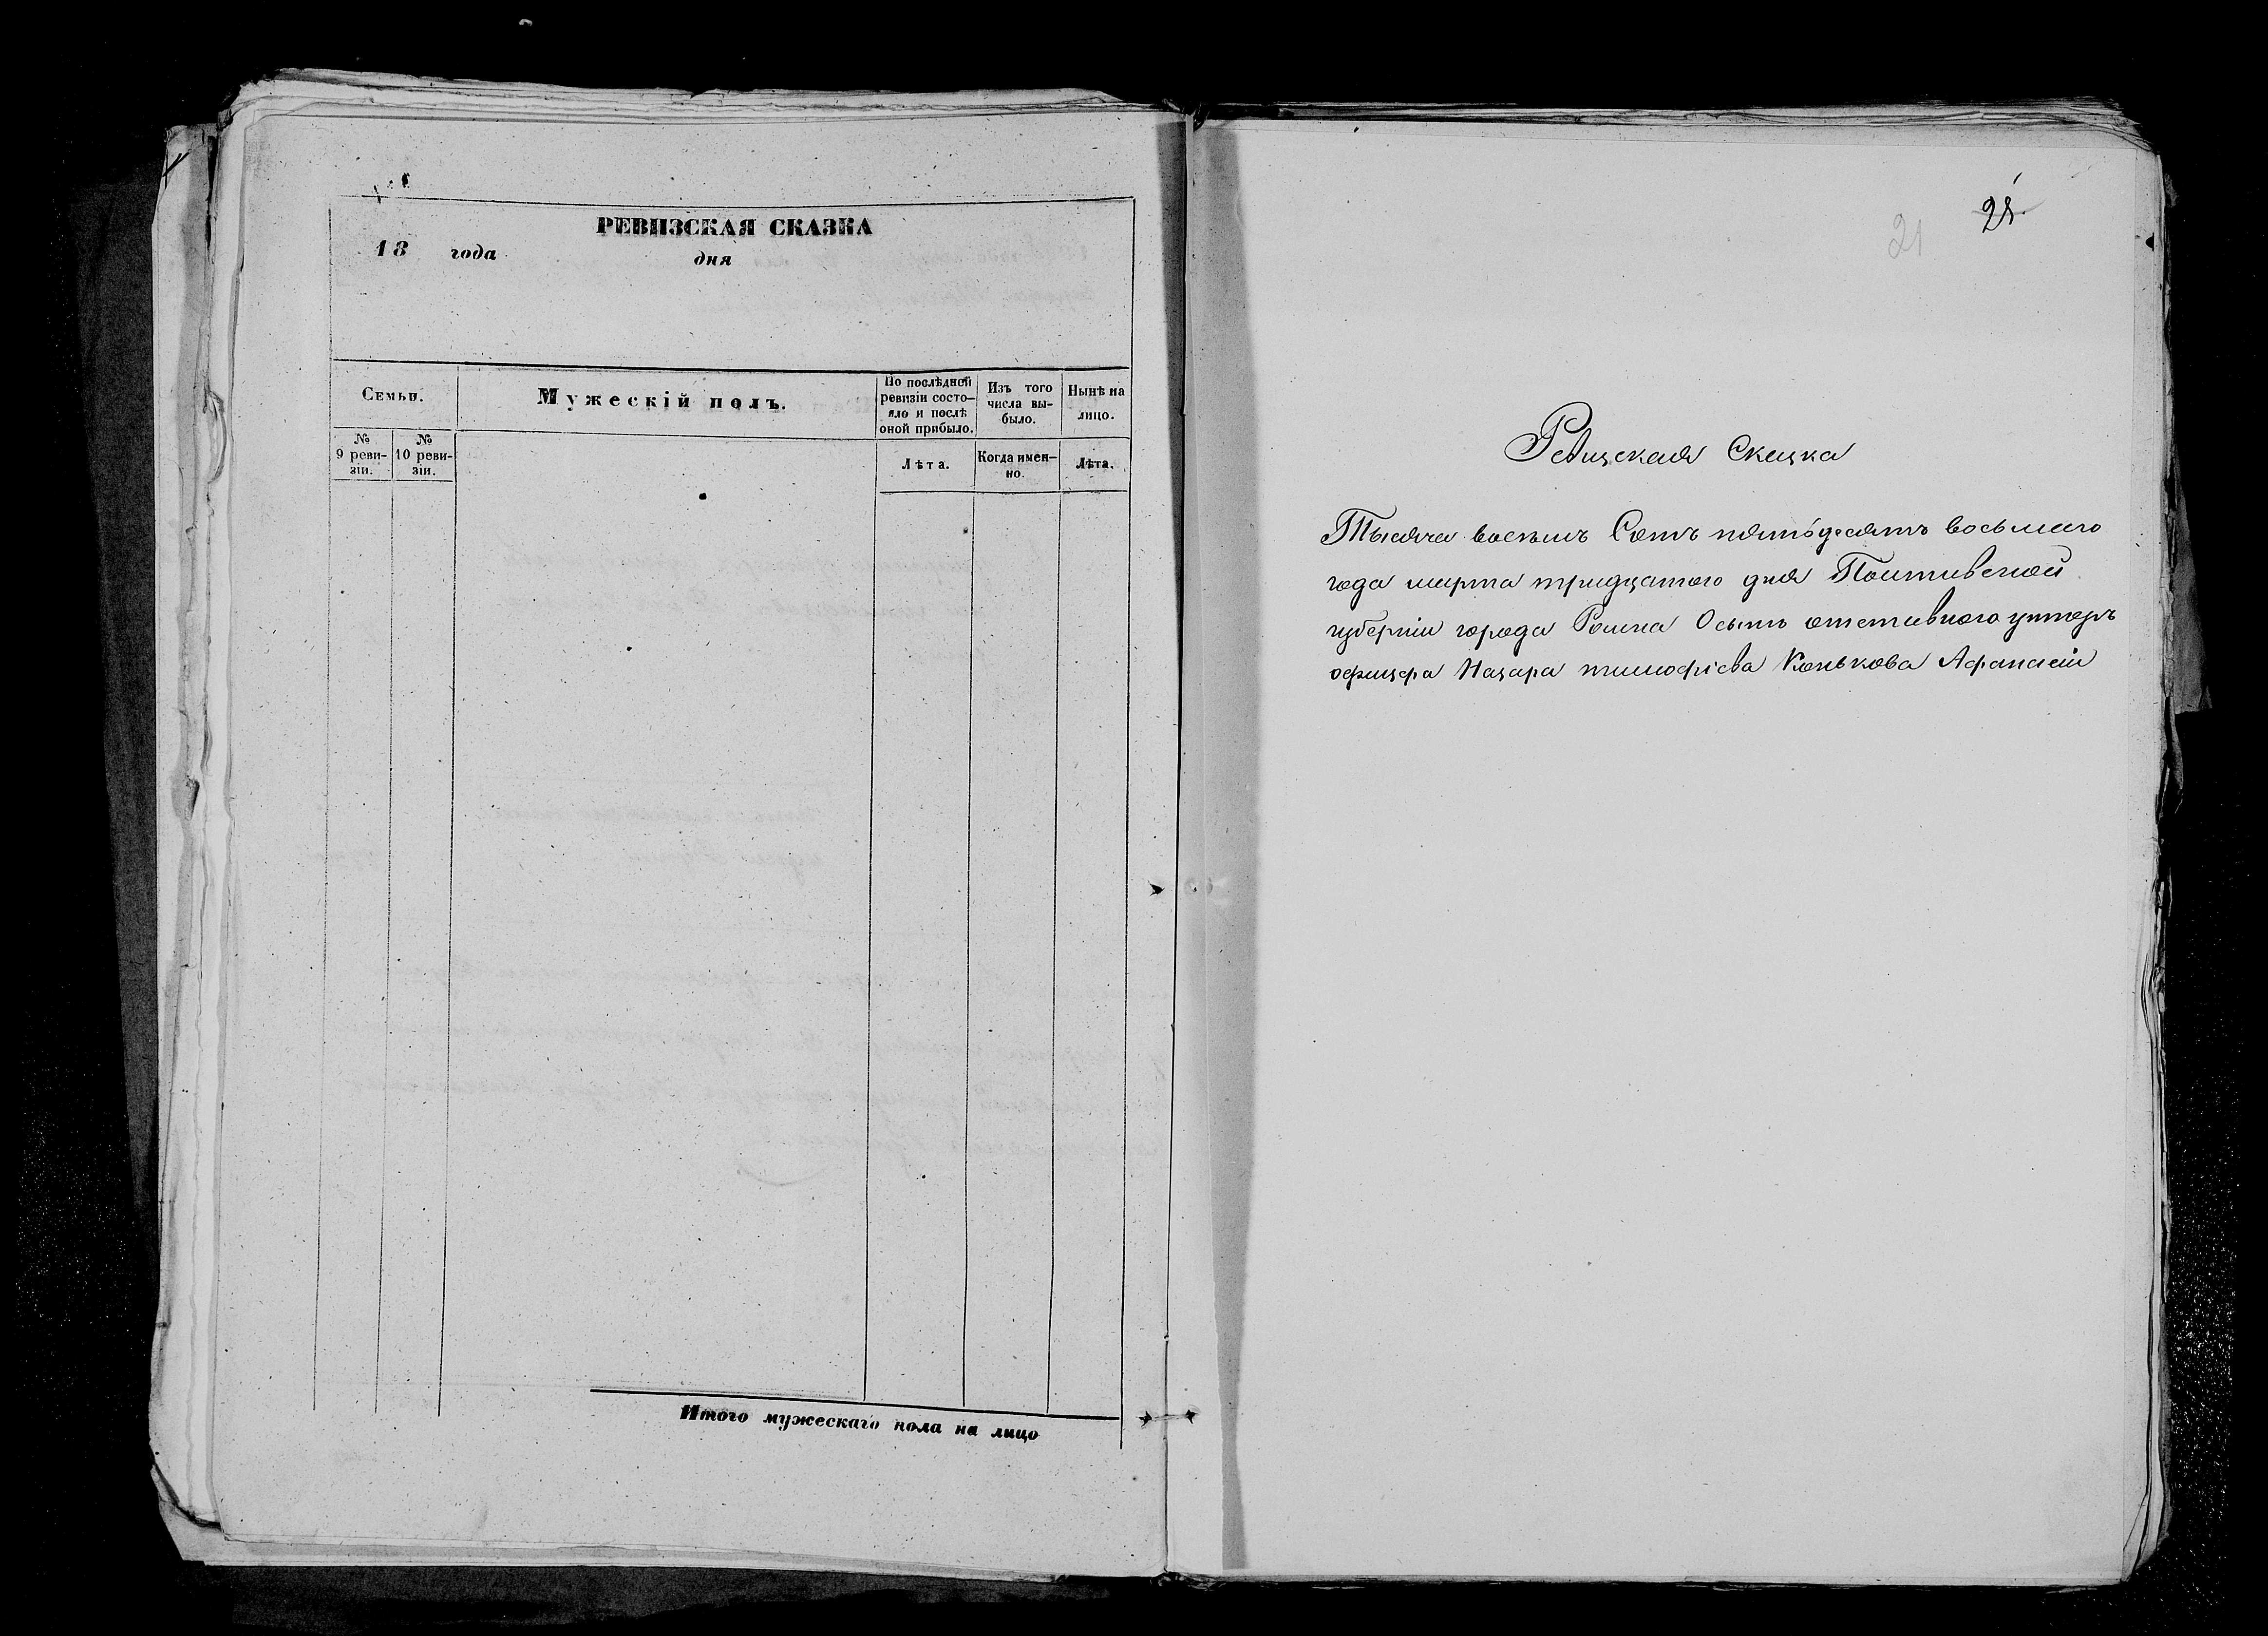 РЕВИЗСКАЯ СКАЗКА
18 года дня
Семьи.
Мужескій полъ.
По послѣдней ревизіи состо-
яло и послѣ оной прибыло.
Изъ того числа вы-
было.
Нынѣ на лицо.
№ 9 реви-
зіи.
№ 10 реви-
зіи.
Лѣта.
Когда имен-
но.
Лѣта.
Итого мужескаго пола на лицо
21
Ревизская Сказка
Тысяча восемь Сотъ пятьдесятъ восьмаго
года марта тридцатого дня Полтавской
губерніи города Ромна отставного унтеръ
офицера Назара тимофіева Конькова Афанасій